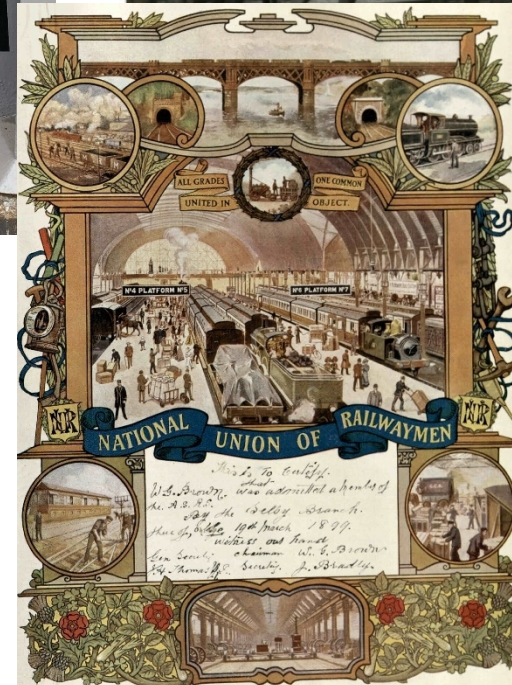 ALL GRADES ONE COMMON
UNITED IN OBJECT.
Nº4 PLATFORM Nº5
Nº6 PLATFORM Nº7
NUR
NUR
NATIONAL UNION OF RAILWAYMEN
This is to Certify.
that
W. G. Brown was admitted a member of
the A.S.R.S.
By the Selby Branch.
19th March 1899.
witness our hand
Chairman W. G. Brown
Thomas Secretary J. Bradley